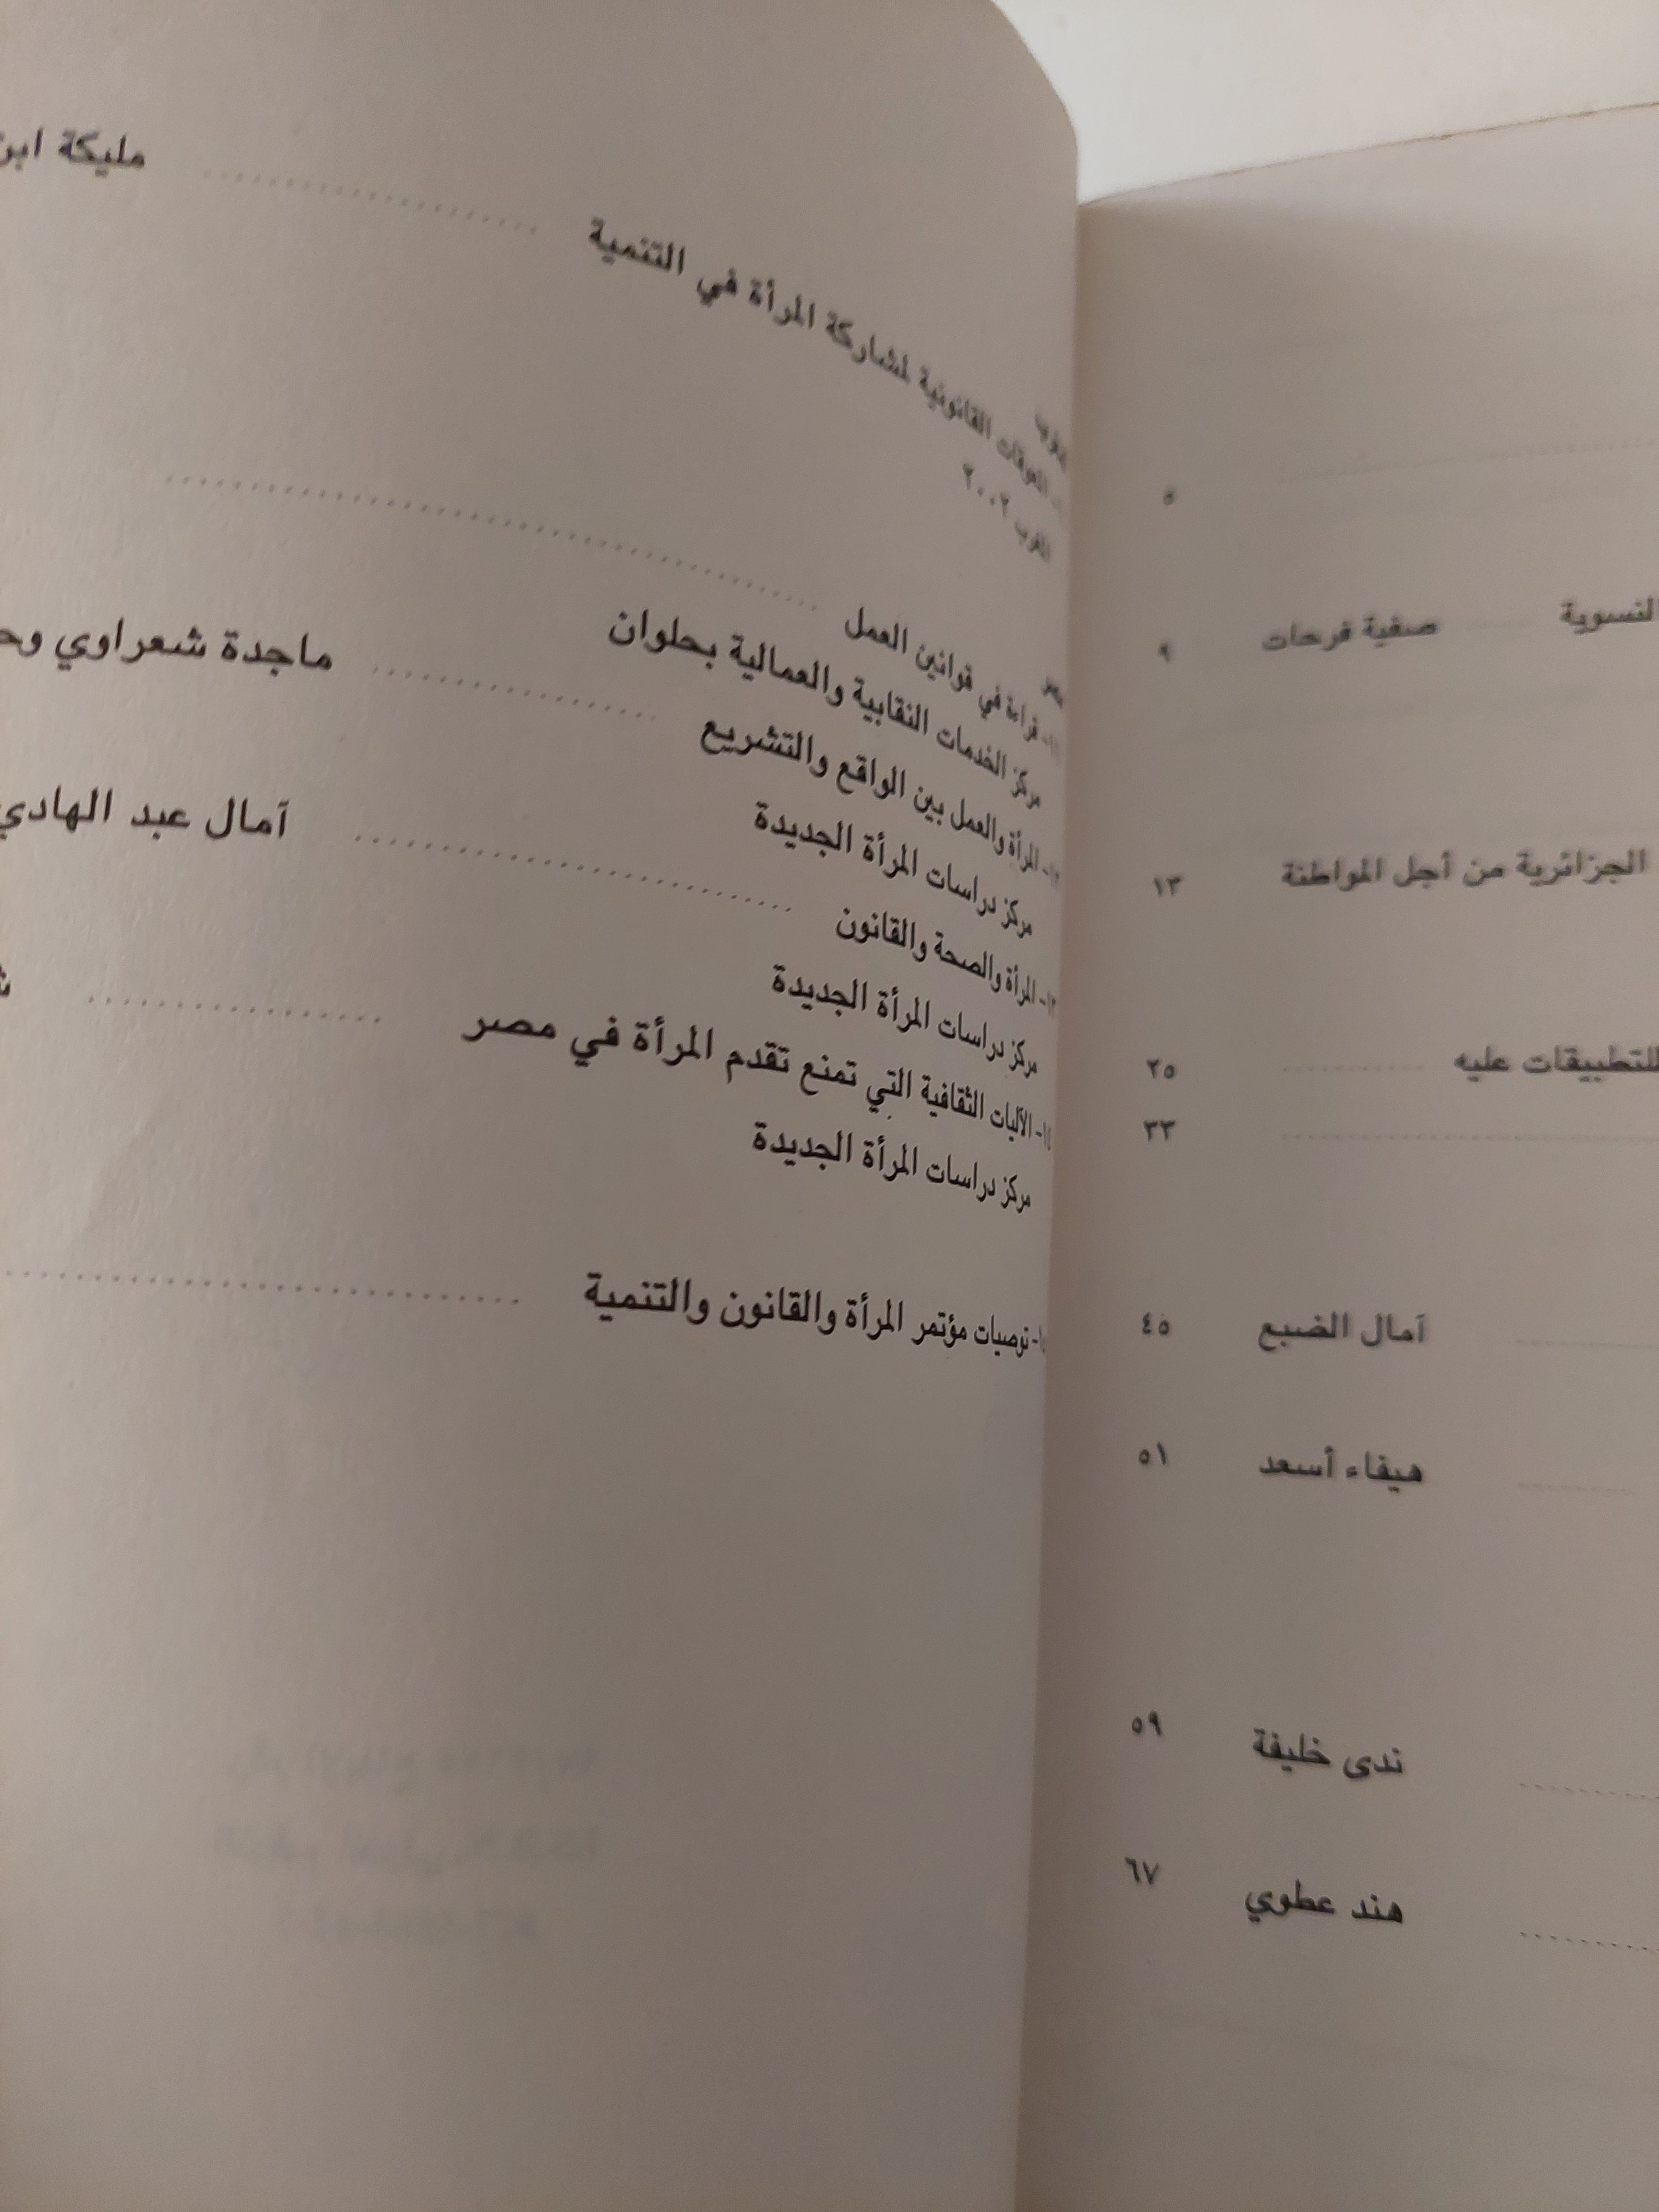 ٥
النسوية ...... صفية فرحات ٩
الجزائرية من أجل المواطنة ١٣
للتطبيقات عليه .............. ٢٥
.............. ٣٣
.............. آمال الضبع ٤٥
.............. هيفاء أسعد ٥١
.............. ندى خليفة ٥٩
.............. هند عطوي ٦٧
المعوقات القانونية لمشاركة المرأة في التنمية .............. مليكة
المغرب ٢٠٠٢
مصر
١١- قراءة في قوانين العمل ..............
مركز الخدمات النقابية والعمالية بحلوان
١٢- المرأة والعمل بين الواقع والتشريع .............. ماجدة شعراوي
مركز دراسات المرأة الجديدة
١٣- المرأة والصحة والقانون .............. آمال عبد الهادي
مركز دراسات المرأة الجديدة
١٤- الآليات الثقافية التي تمنع تقدم المرأة في مصر ..............
مركز دراسات المرأة الجديدة
١٥- توصيات مؤتمر المرأة والقانون والتنمية ..............